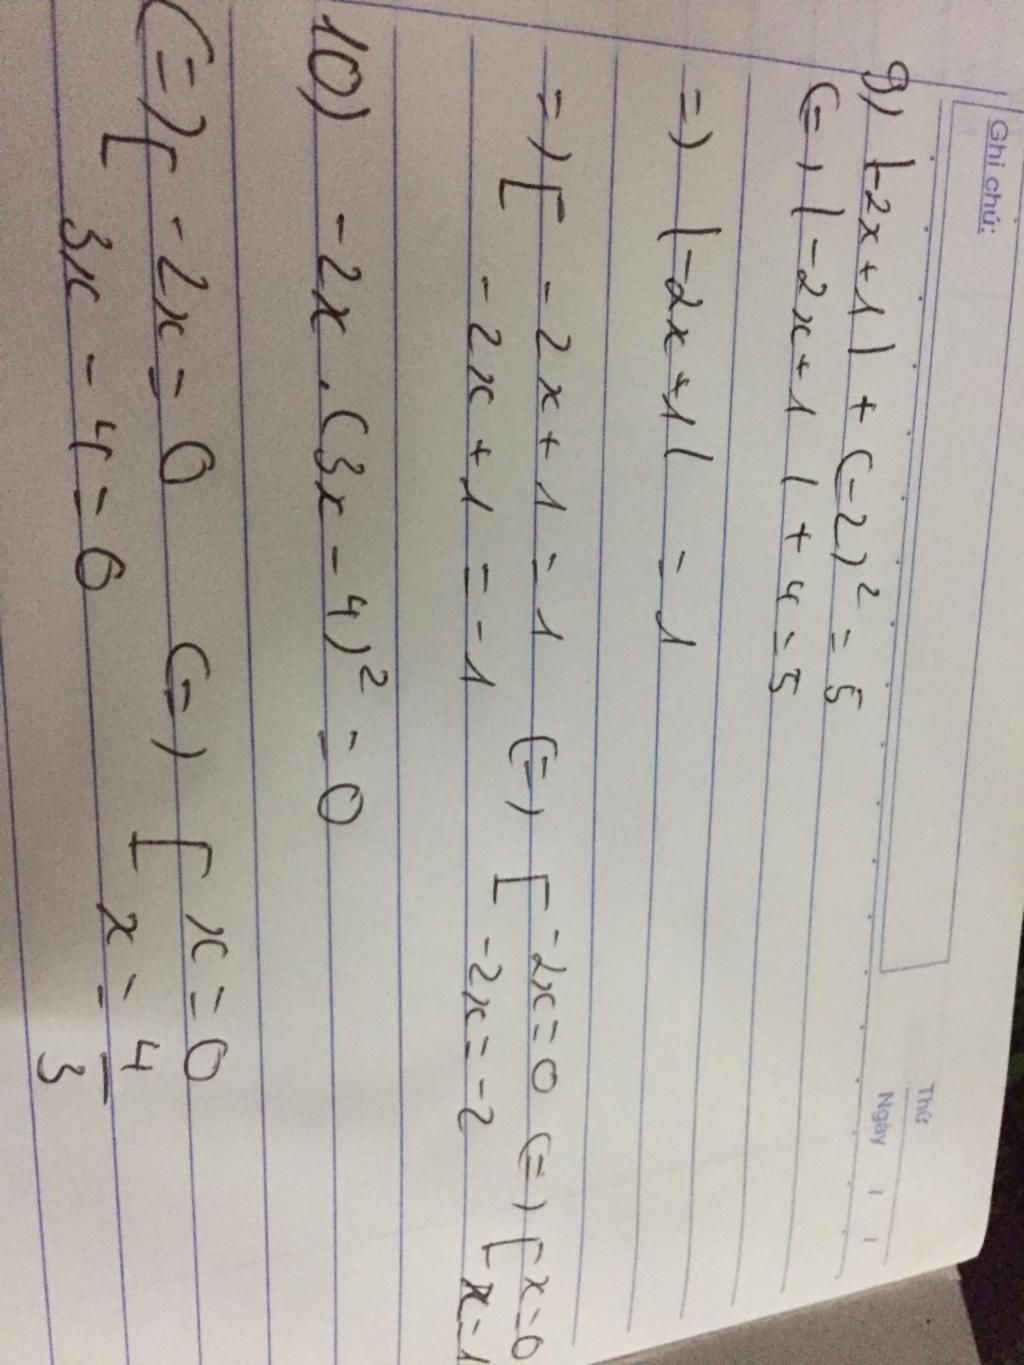 Ghi chú:
Thứ
Ngày / /
9) |-2x+1| + (-2)² = 5
(=) |-2x+1| + 4 = 5
=) |-2x+1| = 1
=) [ -2x+1 = 1 (=) [ -2x = 0 (=) [ x = 0
-2x+1 = -1 -2x = -2 x = 1
10) -2x . (3x-4)² = 0
(=) [ -2x = 0 (=) [ x = 0
3x - 4 = 0 x = 4/3